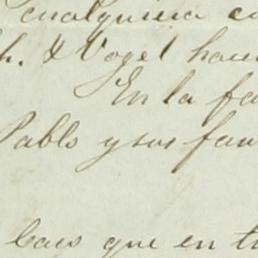 cualquiera co
h. & Vogel hau
En la fa
Pablo y sus fam
baes que en t